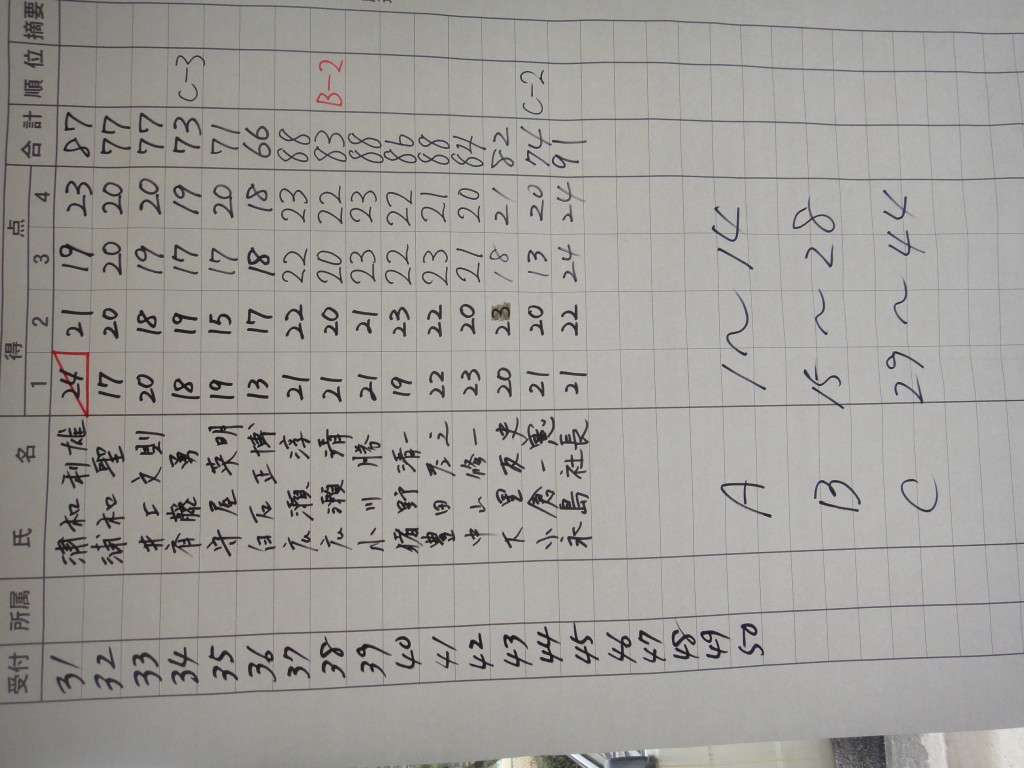 受付 所属 氏名 得点 合計 順位 摘要
1 2 3 4
31 浦和利雄 24 21 19 23 87
32 浦和聖 17 20 20 20 77
33 井上文則 20 18 19 20 77
34 斉藤勇 18 19 17 19 73 C-3
35 守屋英明 19 15 17 20 71
36 白石正博 13 17 18 18 66
37 広瀬淳 21 22 22 23 88
38 広瀬清 21 20 20 22 83 B-2
39 小川勝 21 21 23 23 88
40 猪野清一 19 23 22 22 86
41 豊田 之 22 22 23 21 88
42 中山修一 23 20 21 20 84
43 大里友史 20 23 18 21 82
44 小倉一憲 21 20 13 20 74 C-2
45 永島社長 21 22 24 24 91
46
47
48
49
50
A 1~14
B 15~28
C 29~44